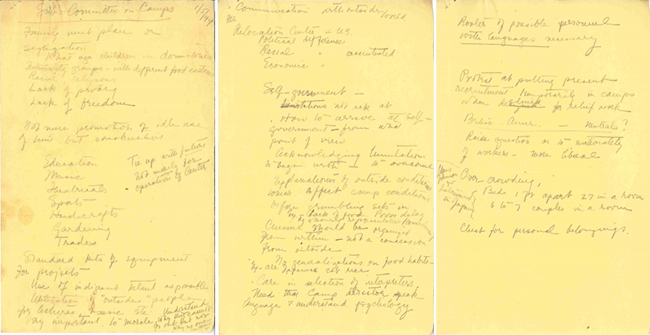 Sub-Committee on Camps 1/17/44
Family unit place or
Segregation
What age children in dormitories
Minority groups - with different food customs
Racial religions
Lack of privacy
Lack of freedom
Not mere promotion of idle use
of time but constructive
Education
Music
Theatricals
Sports
Handicrafts
Gardening
Trades
Tie up with future
Not merely for
operation of Center
Standard kits of equipment
for projects
Use of indigent talent as possible
Utilization of "outside" people
for lectures, music etc
Very important to morale
Communication with outside world
Relocation Centers - U.S.
Political differences
Racial " accentuated
Economic "
Self-government -
Limitations not seen at
How to arrive at self-
government - from what
point of view
Acknowledging limitations
to begin with - to overcome
Explanation of outside conditions
which affect camp conditions
before grumbling sets in
e.g. - Lack of food. Room delay
Council should be organized
from within - not a concession
from outside
No generalizations on food habits
Care in selection of interpreters
Need that Camp director speak
language & understand psychology
Roster of possible personnel
with languages necessary
Protest at putting present
recruitment temporarily in camps
when for relief work
British Amer. - Mutuals?
Raise question as to
of workers - more liberal
Over-crowding,
Beds 1 ft apart 27 in a room
6 to 7 couples in a room
Chest for personal belongings.